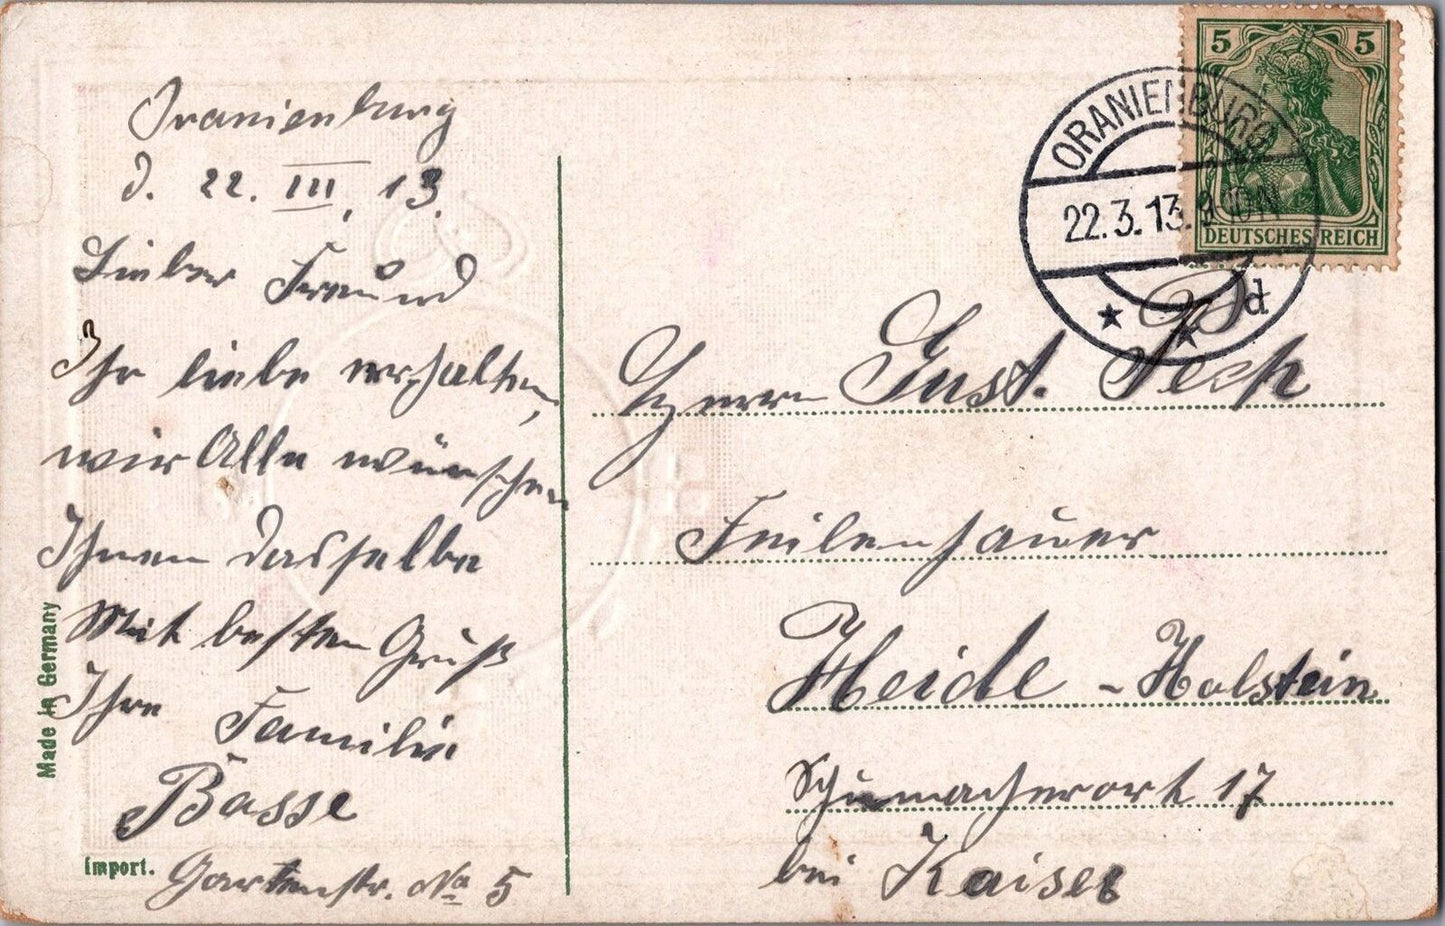 Oranienburg
d. 22. III. 13.
Lieber Freund
Ihr liebe erhalten,
wir Alle wünschen
Ihnen dasselbe
Mit besten Gruß
Ihre Familie
Basse
Gartenstr. No 5
Made in Germany
Import.
5 5
DEUTSCHES REICH
ORANIENBURG
22.3.13.
d
Herrn Gust. Pech
Feilenhauer
Heide - Holstein
Schumacherort 17
bei Kaiser